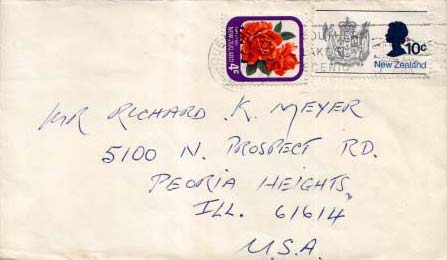 NEW ZEALAND 4c
10c
New Zealand
MR RICHARD K. MEYER
5100 N. PROSPECT RD.
PEORIA HEIGHTS,
ILL. 61614
U.S.A.